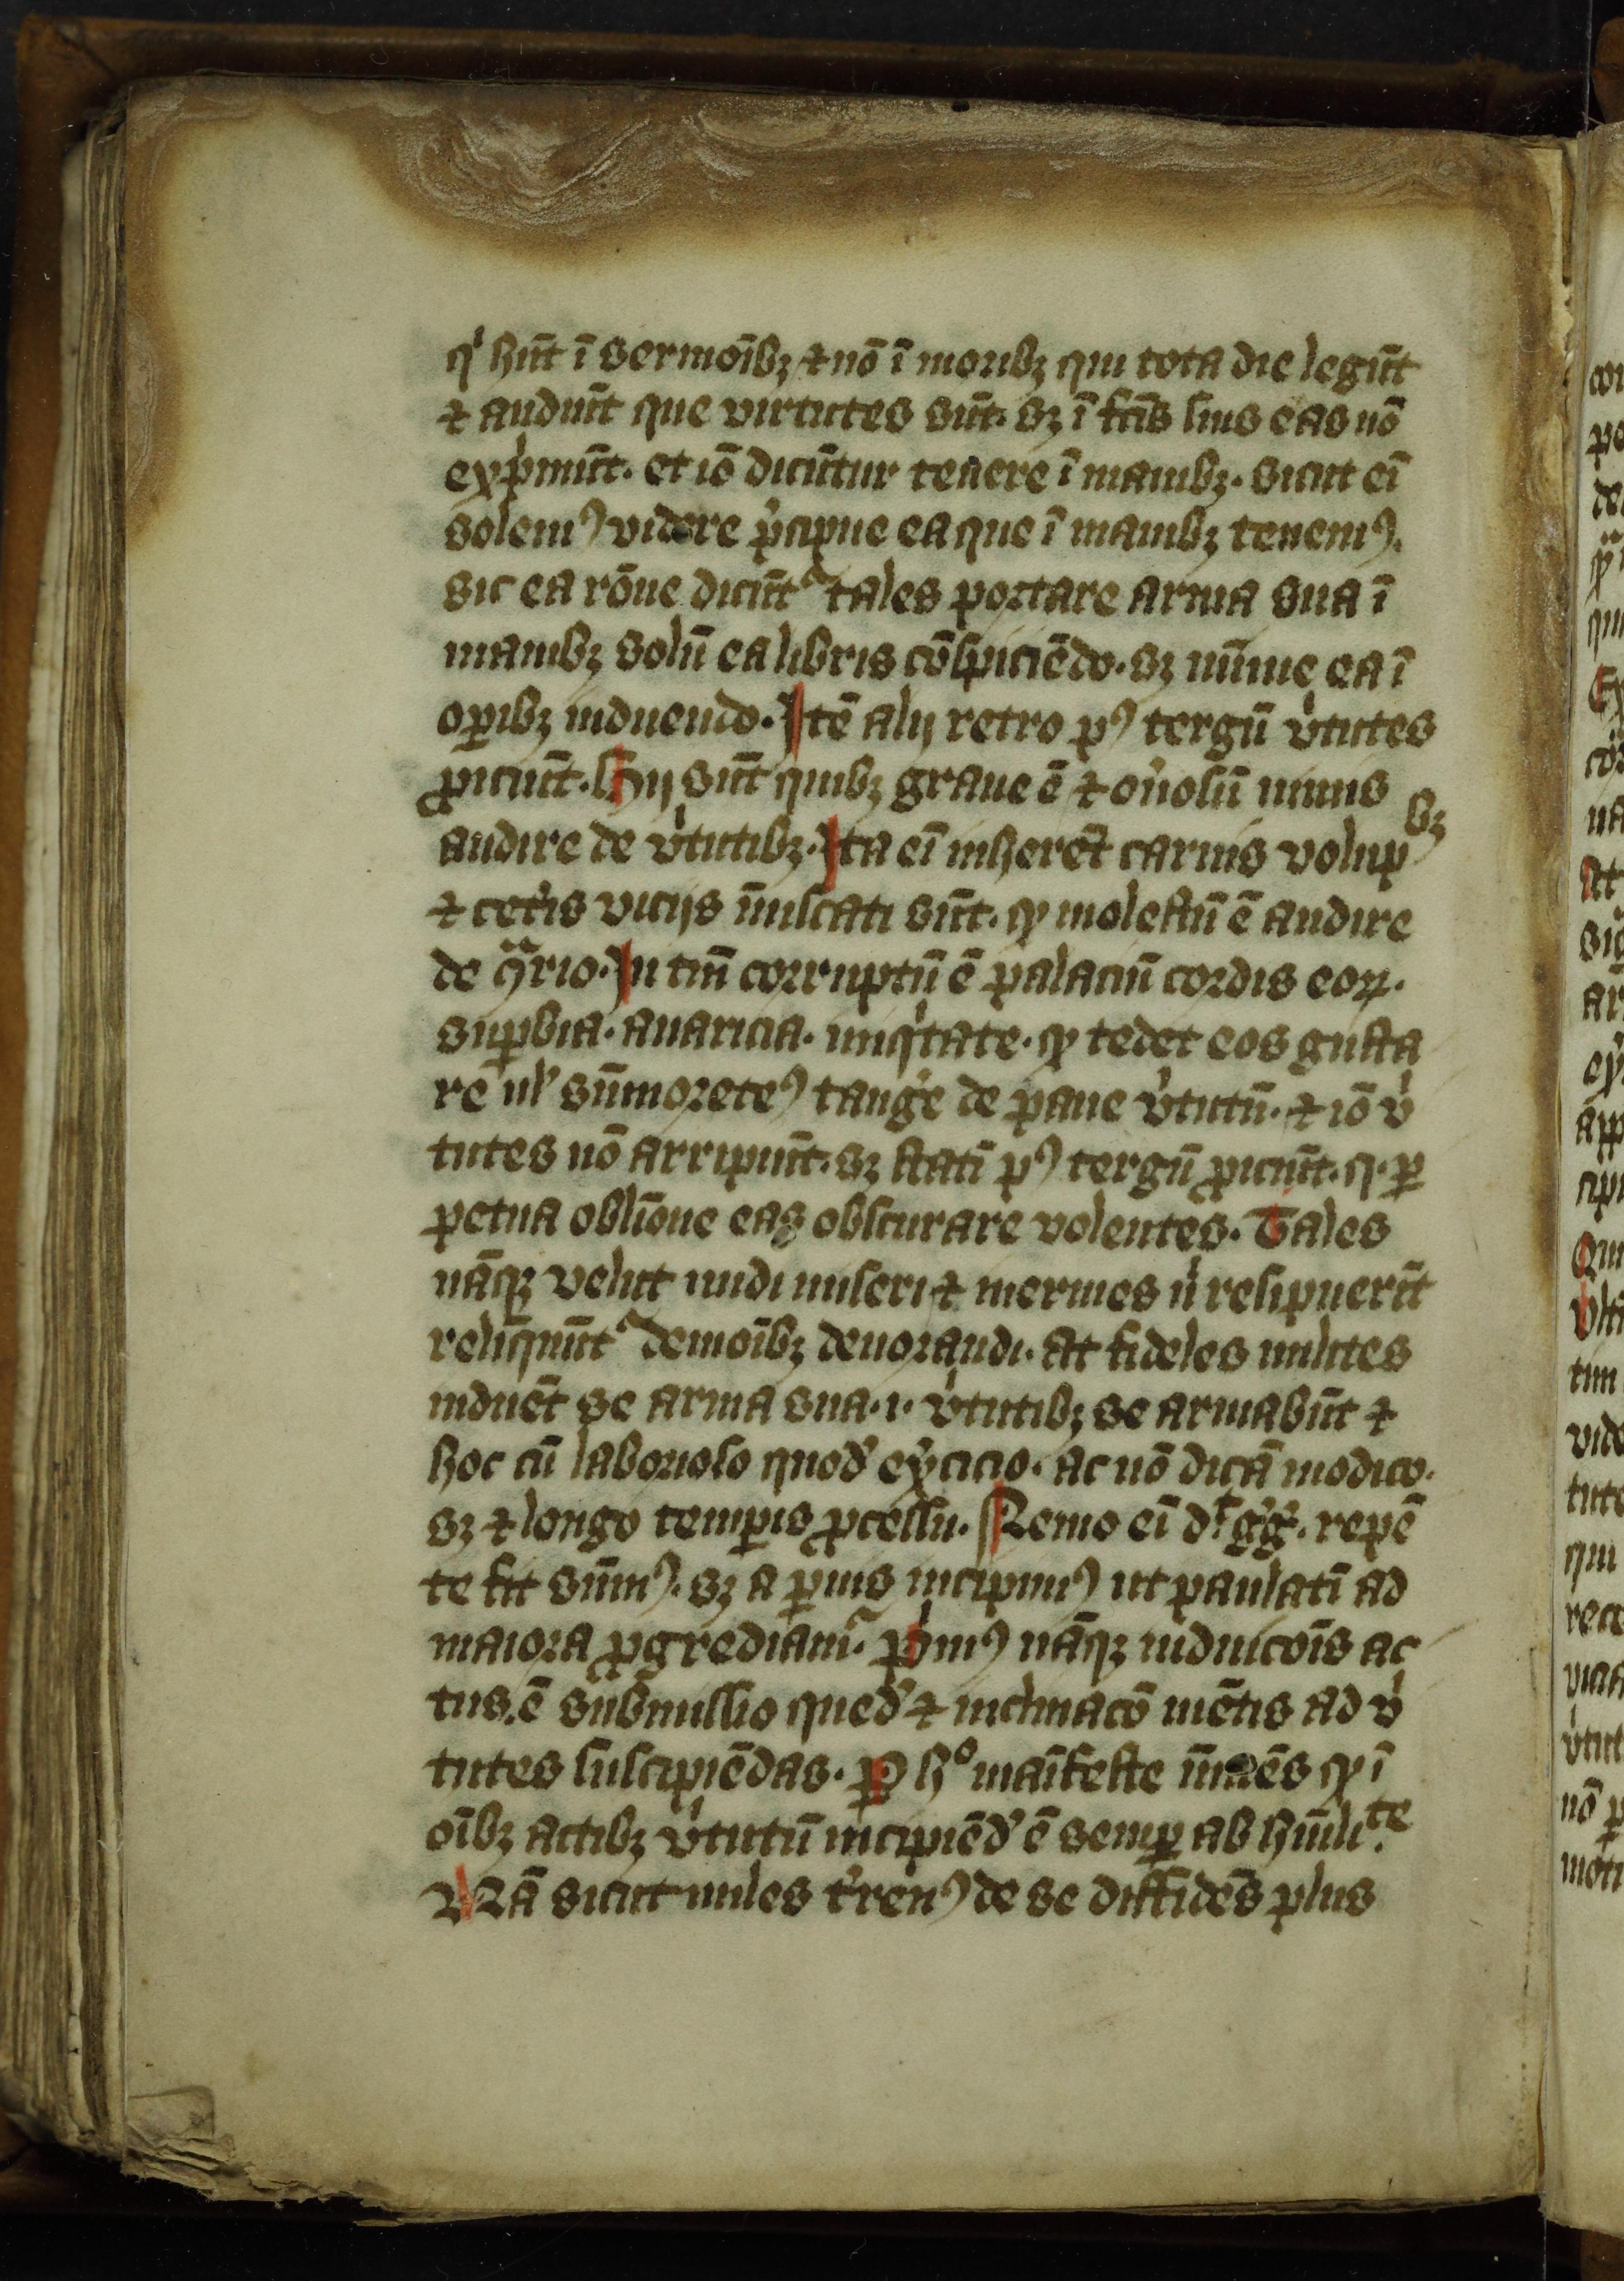 qͥ hn̄t ī sermoībꝫ ⁊ nō ī moribꝫ qui tota die legūt
⁊ audiūt que virtutes sūt. sꝫ ī fcīs suis eas nō
exp̍mūt. et iō dicūtur tenere ī manibꝫ. sicut eī
solemꝰ videre p̍cipue ea que ī manibꝫ tenemꝰ.
sic ea rōne dicūtᷣ tales portare arma sua ī
manibꝫ solū ea libris cōspiciēdo. sꝫ mīme ea ī
oꝑibꝫ induendo. Itē alij retro pꝰ tergū v̍tutes
ꝓiciūt. Hij sūt quibꝫ graue ē ⁊ on̍osū nimis
audire de v̍tutibꝫ. Ita eī inherēt carnis volupbꝫ
⁊ cet̍is vicijs īuiscati sūt. ꝙ molestū ē audire
de ꝯᷓrio. In tm̄ corruptū ē palaciū cordis eoꝝ.
suꝑbia. auaricia. iniqͥtate. ꝙ tedet eos gusta
re ul̍ sūmoretenꝰ tang̍e de pane v̍tutū. ⁊ iō v̍
tutes nō arripiūt. sꝫ statī pꝰ tergū ꝓiciūt. q. ꝑ
petua oblīone eas obscurare volentes. Tales
nāqꝫ velut nudi miseri ⁊ inermes n̍ resipuerīt
reliquūtᷣ demoībꝫ deuorandi. At fideles milites
induēt se arma sua. i. v̍tutibꝫ se armabūt ⁊
hoc cū laborioso quod̍ ex̍cicio. ac nō dicā modico.
sꝫ ⁊ longo temꝑis ꝓcessu. Nemo eī dͭ g̍g̍. repē
te fit sūmꝰ. sꝫ a ꝑuis incipimꝰ ut paulatī ad
maiora ꝓgrediamᷣ. Pͥmꝰ nāqꝫ induicōis ac
tus. ē submissio qued̍ ⁊ inclinacō mētis ad v̍
tutes suscipiēdas. P hͦ maīfeste īuēs ꝙ ī
oībꝫ actibꝫ v̍tutū incipiēd̍ ē semꝑ ab hūilite.
Nā sicut miles t̍renꝰ de se diffidēs plus